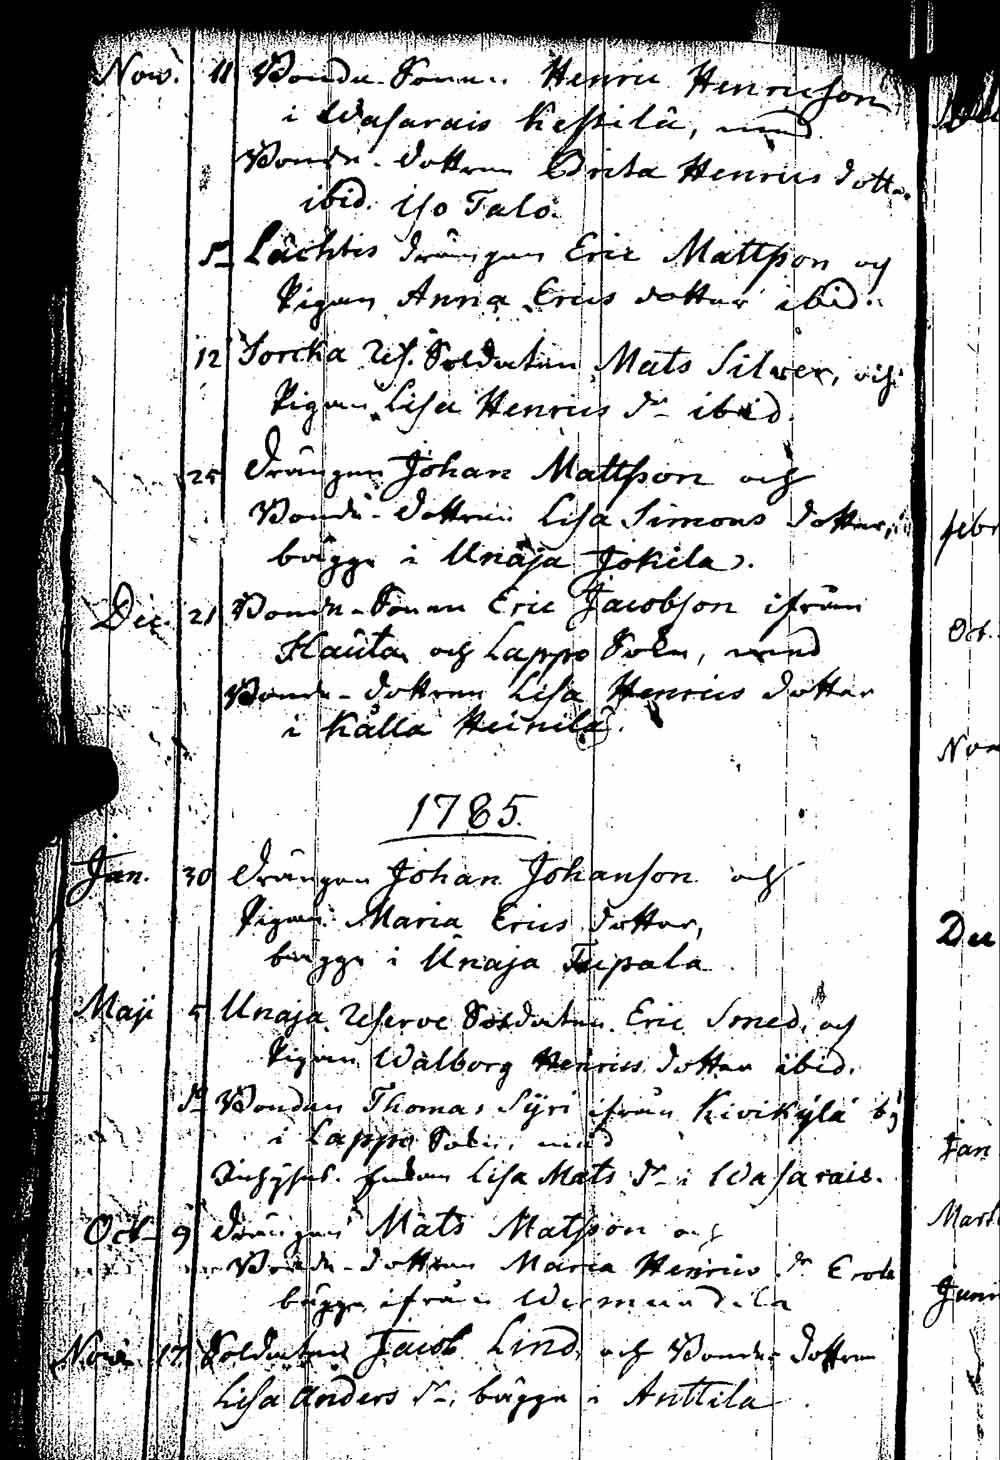 Nov. 11 Bonde Sonen Henric Henricson
i Wasarais Kessilä, med
Bonde-dottren Brita Henrics dotter
ibid. Iso Talo.
Dº Lächtis drängen Eric Mattsson och
Pigan Anna Erics dotter ibid.
12 Sorcka Res. Soldaten Mats Silwer, och
Pigan Lisa Henrics dr ibid.
25 drängen Johan Mattsson och
Bonde-dottren Lisa Simons dotter,
bägge i Unaja Jokila.
Dec. 21 Bonde-Sonen Eric Jacobson ifrån
Kauta och Lappo Sokn, med
Bonde-dottren Lisa Henrics dotter
i Källa Heinilä.
1785.
Jan. 30 drängen Johan Johanson och
Pigan Maria Erics dotter,
bägge i Unaja Tupala
Maji 5 Unaja Reserve Soldaten Eric Smed, och
Pigan Walborg Henrics dotter ibid.
Dº Bonden Thomas Syri ifrån Kivikylä by
i Lappo Sokn, med
Enkan Lisa Mats dr i Wasarais.
Oct. 9 drängen Mats Matsson och
Bonde-dottren Maria Henrics dr Erola
bägge ifrån Wermundila
Nov. 17 Soldaten Jacob Lind, och Bonde dottren
Lisa Anders dr, bägge i Anttila
febr
Oct.
Nov
Dec
Jan
Mart
Juni